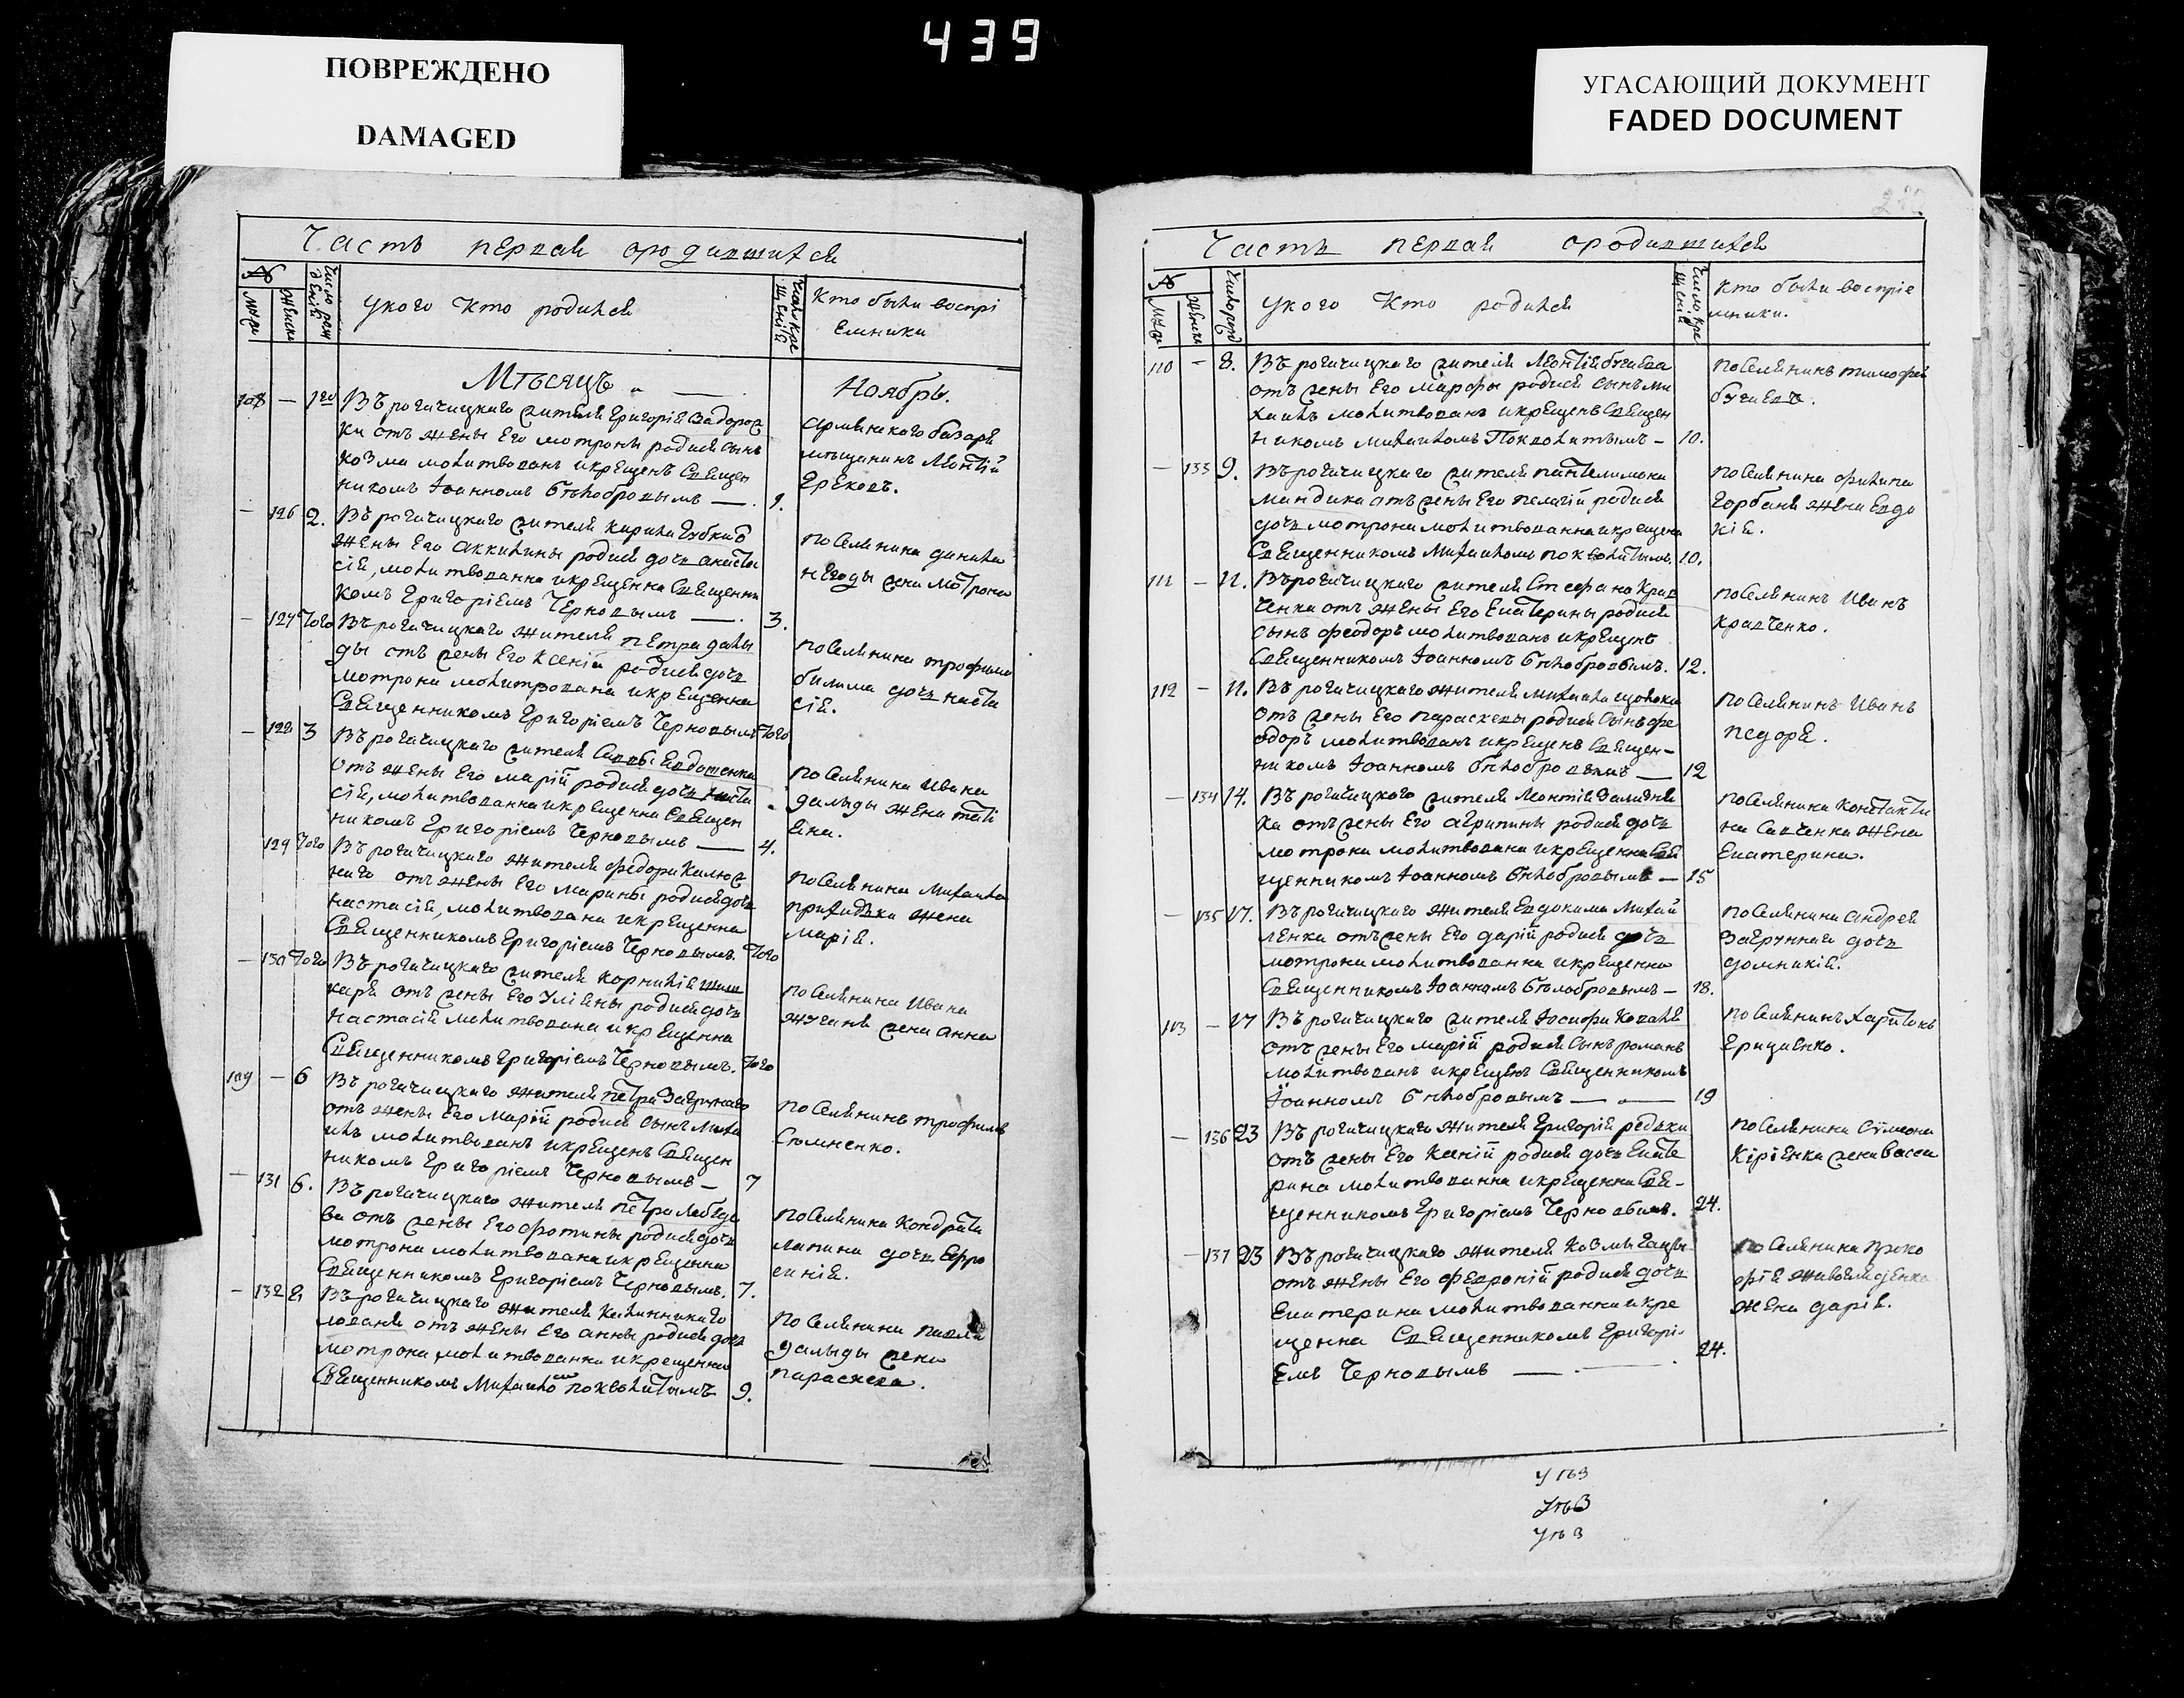 439
ПОВРЕЖДЕНО
DAMAGED
УГАСАЮЩИЙ ДОКУМЕНТ
FADED DOCUMENT
Часть первая ородившихся
№
Муж
Женск
Число рож
деній
У кого кто родился
Число кре
щеній
Кто были воспрі
емники
Мѣсяцъ
Ноябрь.
108 — 1го Въ рогачицкаго жителя Григорія Задорож
ки отъ жены Его мотроны родися сынъ
козма молитвованъ и крещенъ Священ
никомъ Іоанномъ Бѣлобровымъ —
Армянскаго базаря
мѣщанинъ Леонтій
Грековъ.
— 126 2. Въ рогачицкаго жителя Кирила Губки
жены Его Аккилины родися дочь анаста
сія, молитвованна и крещенна Священни
комъ Григоріемъ Черновымъ — 3.
поселянина данила
негоды жена мотрона
— 127 того Въ рогачицкаго жителя петра далы
ды отъ жены Его Ксеніи родися дочь
мотрона молитвована и крещенна
Священникомъ Григоріемъ Черновымъ того
поселянина трофима
билима дочь наста
сія.
— 128 3 Въ рогачицкаго жителя Саввы Евдошенка
отъ жены Его маріи родися дочь наста
сія, молитвованна и крещенна Священ
никомъ Григоріемъ Черновымъ — 4.
поселянина Ивана
далыды жена тати
яна.
129 того Въ рогачицкаго жителя федора Калюж
наго отъ жены Его марины родися дочь
настасія, молитвована и крещенна
Священникомъ Григоріемъ Черновымъ. того
поселянина Михаила
приходька жена
марія.
— 130 того Въ рогачицкаго жителя корнилія шин
каря отъ жены Его Уліяны родися дочь
настасія молитвована и крещенна
Священникомъ Григоріемъ Черновымъ. того
поселянина Ивана
жучаня жена анна
109 — 6 Въ рогачицкаго жителя петра Загрунаго
отъ жены Его маріи родися сынъ миха
илъ молитвованъ и крещенъ Священ
никомъ Григоріемъ Черновымъ — 7
поселянинъ трофимъ
Сомненко.
— 131 6. Въ рогачицкаго жителя петра Лебеде
ва отъ жены Его фотины родися дочь
мотрона молитвована и крещенна
Священникомъ Григоріемъ Черновымъ. 7.
поселянина Кондрата
лапина дочь Ефро
синія.
— 132 Въ рогачицкаго жителя Калинника го
лованя отъ жены Его анны родися дочь
мотрона молитвованна и крещенна
Священникомъ Михаиломъ поквалитымъ 9.
поселянина павла
далыды жена
параскева.
Часть первая ородившихся
№
Муж
Женск
Число рож
У кого кто родися
Число кре
щеній
Кто были воспріе
мники.
110 — 8. Въ рогачицкаго жителя Леонтія бугаева
отъ жены Его марфы родися сынъ ми
хаилъ молитвованъ и крещенъ Священ
никомъ михаиломъ Поквалитымъ — 10.
поселянинъ тимофей
бугаевъ.
— 133 9. Въ рогачицкаго жителя пантелимона
мандика отъ жены Его пелагіи родися
дочь мотрона молитвованна и крещена
Священникомъ Михаиломъ поквалитымъ. 10.
поселянина филипа
горбаня жена Евдо
кія.
111 — 11. Въ рогачицкаго жителя Стефана Крав
ченка отъ жены Его Екатерины родися
сынъ феодоръ молитвованъ и крещенъ
Священникомъ Іоанномъ Бѣлобровымъ. 12.
поселянинъ Иванъ
кравченко.
112 — 11. Въ рогачицкаго жителя михаила щовкоки
отъ жены Его параскевы родися сынъ фе
одоръ молитвованъ и крещенъ Священ-
никомъ Іоанномъ Бѣлобровымъ — 12
поселянинъ Иванъ
педоря.
— 134 14. Въ рогачицкаго жителя Леонтія Замидня
ка отъ жены Его агрипины родися дочь
мотрона молитвована и крещенна Свя
щенникомъ Іоанномъ Бѣлобровымъ — 15
поселянина константи
на Савченка жена
Екатерина.
— 135 17. Въ рогачицкаго жителя Евдокима Михай
ленка отъ жены Его даріи родися дочь
мотрона молитвованна и крещенна
Священникомъ Іоанномъ Бѣлобровымъ — 18.
поселянина андрея
Загруннаго дочь
домникія.
113 — 17 Въ рогачицкаго жителя Іосифа Коваля
отъ жены Его маріи родися сынъ романъ
молитвованъ и крещенъ Священникомъ
Іоанномъ Бѣлобровымъ — 19
поселянинъ харитонъ
Грищенко.
— 136 23 Въ рогачицкаго жителя Григорія редьки
отъ жены Его Ксеніи родися дочь Екате
рина молитвованна и крещенна Свя-
щенникомъ Григоріемъ Черновымъ. 24.
поселянина Сѵмеона
Кіріенка жена васса
— 137 23 Въ рогачицкаго жителя Козмы гацы
отъ жены Его февроніи родися дочь
Екатерина молитвованна и кре
щенна Священникомъ Григорі-
емъ Черновымъ — 24.
поселянина проко
фія
жена дарія.